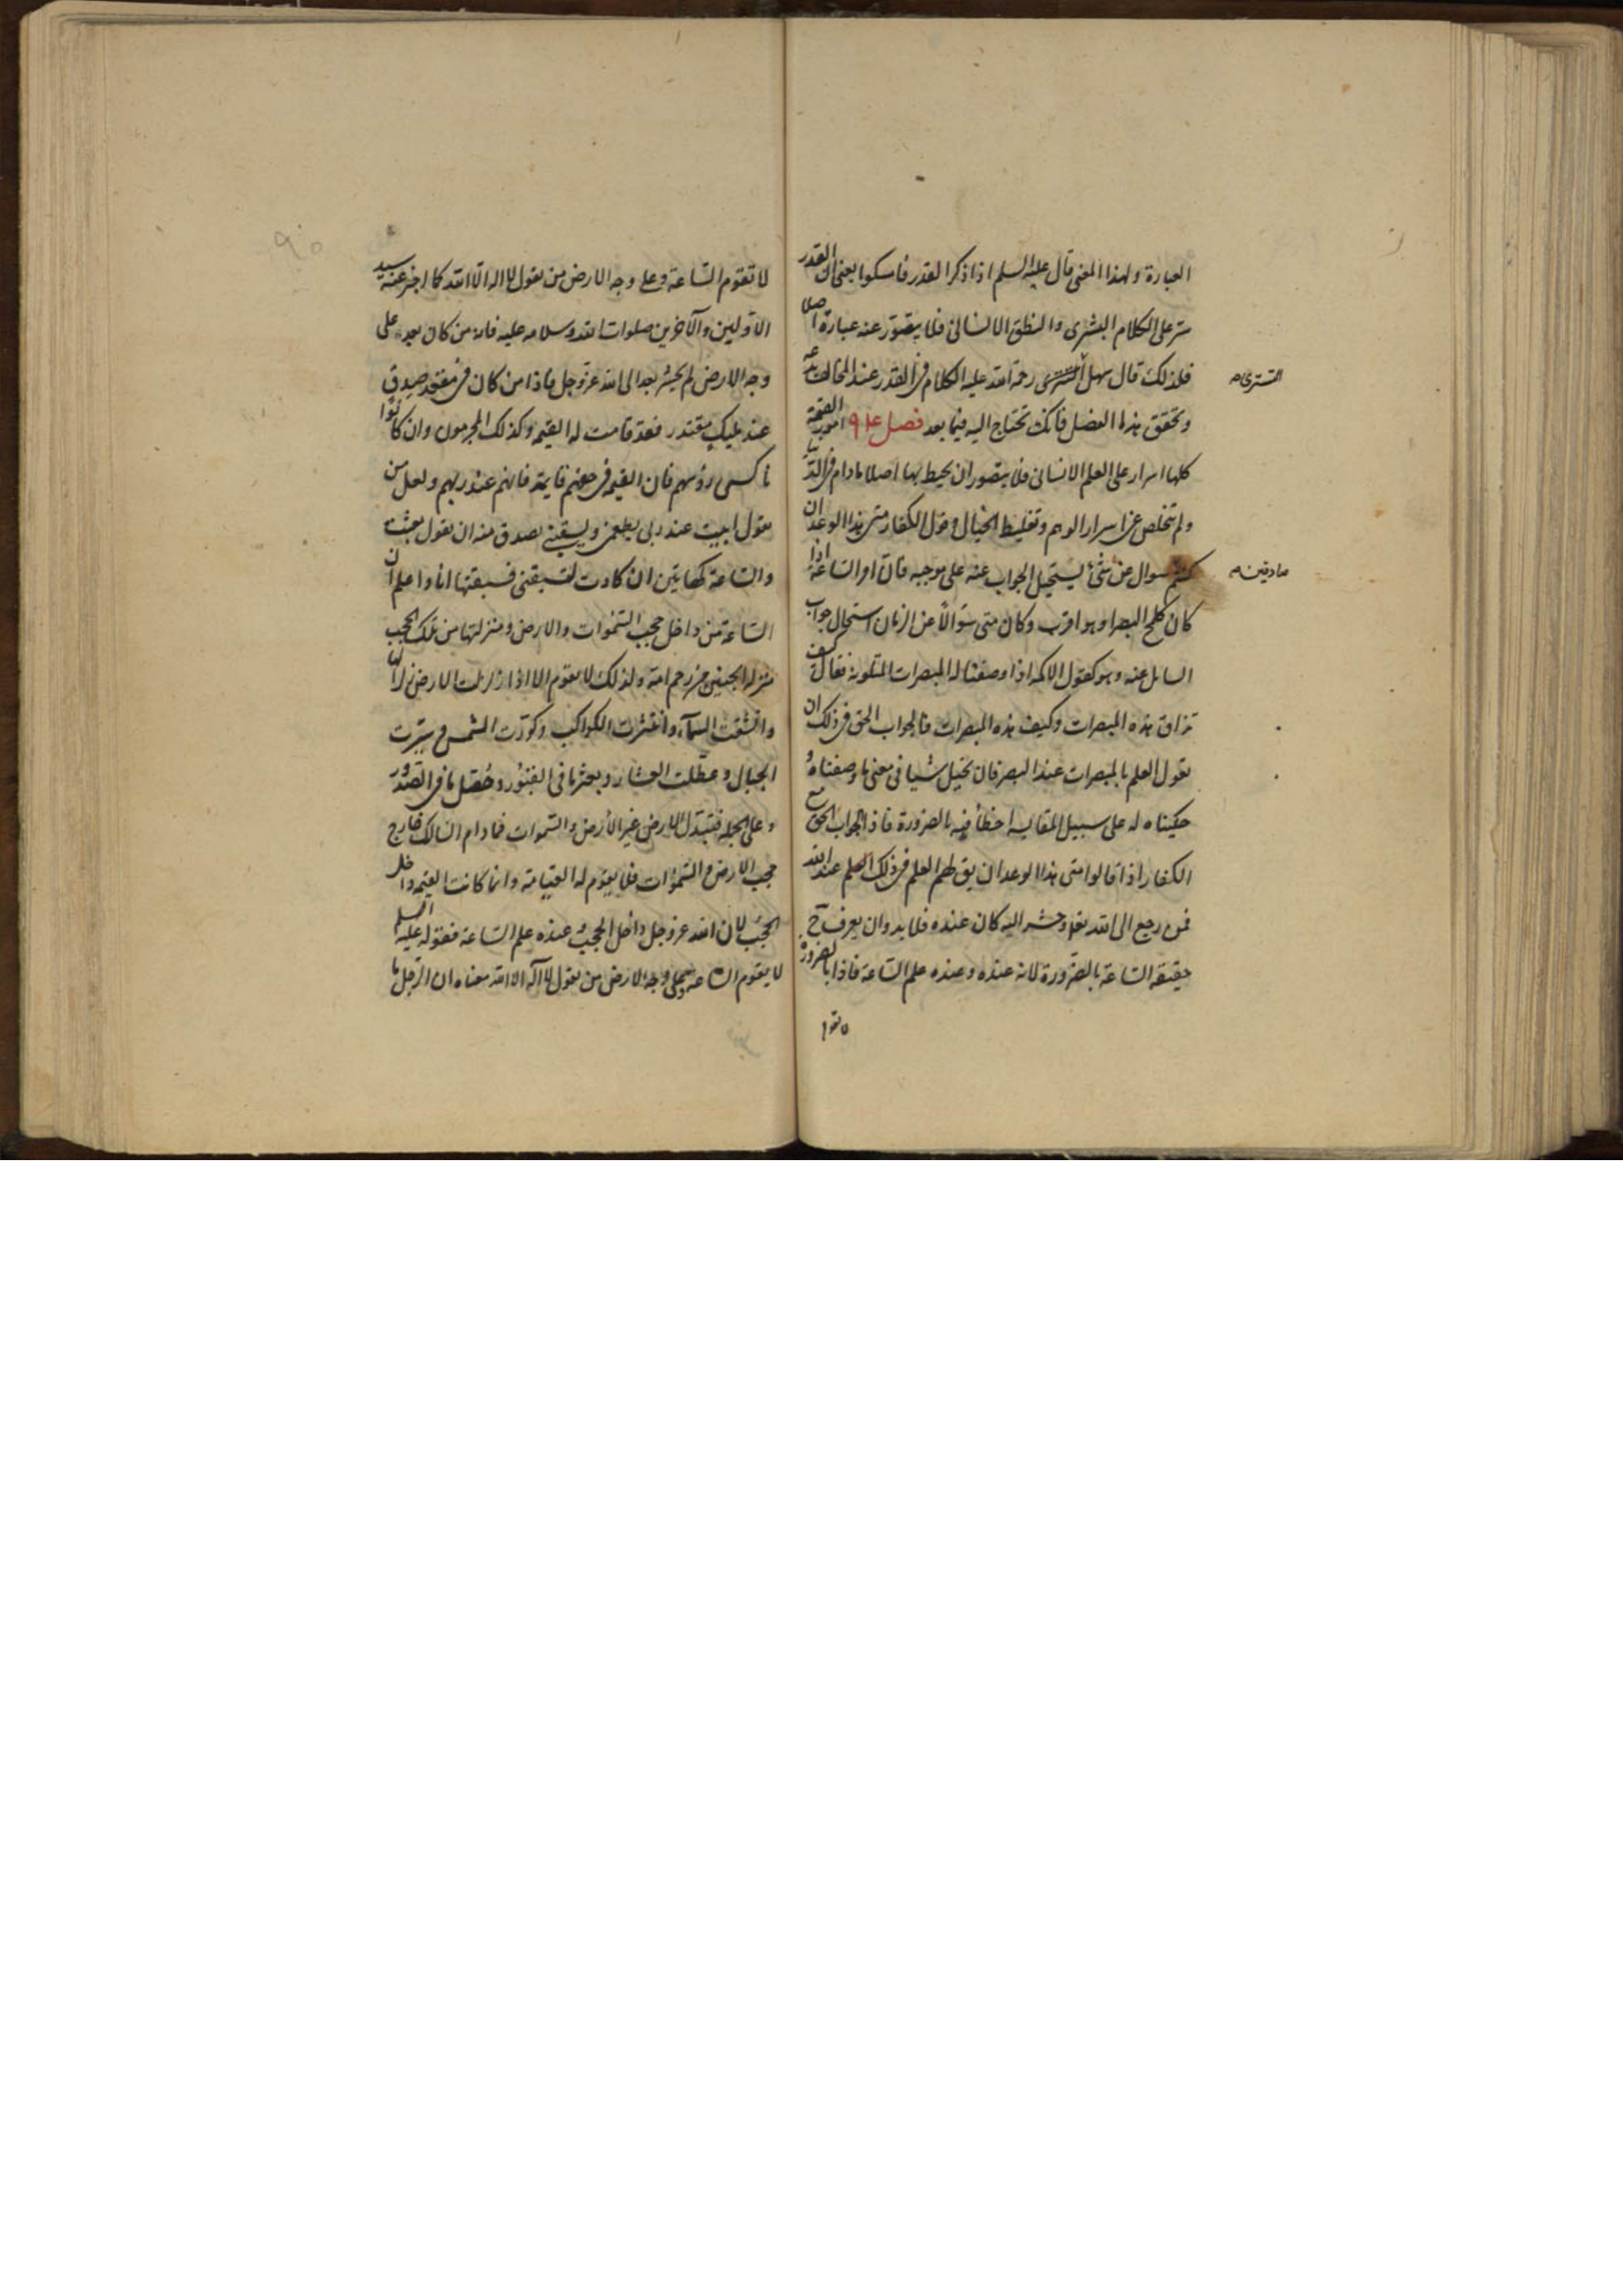 العبارة ولهذا المعنى قال عليه السلم اذا ذكر القدر فامسكوا يعنى ان القدر
سر على الكلام البشرى والنطق الانسانى فلا يتصور عنه عبارة اصلا
فلذلك قال سهل التسترى رحمة الله عليه الكلام فى القدر عند المخالف بدعة
التسترى صح
وتحقق هذا الفصل فانك تحتاج اليه فيما بعد فصل امور القيمة
كلها اسرار على العلم الانسانى فلا يتصور ان يحيط بها اصلا ما دام فى الدنيا
ولم يتخلص عن اسرار الوهم وتغليط الخيال وقول الكفار متى هذا الوعد ان
كنتم سوال عن شئ يستحيل الجواب عنه على موجبه فان امر الساعة اذا
صادقين صح
كان كلمح البصر او هو اقرب وكان متى سؤالا عن الزمان استحال جواب
السايل عنه وهو كقول الاكمه اذا وصفنا له المبصرات المتلونة فقال كيف
تذاق هذه المبصرات وكيف هذه المبصرات فالجواب الحق فى ذلك ان
يقول العلم بالمبصرات عند البصر فان تخيل شيا فى معنى ما وصفناه و
حكيناه له على سبيل المقايسة اخطأ فيه بالضرورة فاذا الجواب الحق مع
الكفار اذا قالوا متى هذا الوعد ان يق لهم العلم فى ذلك العلم عند الله
فمن رجع الى الله تعا وحشر اليه كان عنده فلا بد وان يعرف ح
حقيقة الساعة بالضرورة لانه عنده وعنده علم الساعة فاذا بالضرورة
لا تقوم
لا تقوم الساعة وعلى وجه الارض من يقول لا اله الا الله كما اخبر عنه سيد
الاولين والآخرين صلوات الله وسلامه عليه فانه من كان بعد على
وجه الارض لم يحشر بعد الى الله عز وجل فاذا من كان فى مقعد صدق
عند مليك مقتدر فقد قامت له القيمة وكذلك المجرمون وان كانوا
ناكسى رؤسهم فان القيمة فى حقهم قايمة فانهم عند ربهم ولعل من
يقول ابيت عند ربى يطعمنى ويسقينى يصدق منه ان يقول بعثت
والساعة كهاتين ان كادت لتسبقنى فسبقتها انا واعلم ان
الساعة من داخل حجب السموات والارض ومنزلتها من تلك الحجب
منزلة الجنين من رحم امه ولذلك لا تقوم الا اذا زلزلت الارض زلزالها
وانشقت السمآء وانتثرت الكواكب وكورت الشمس وسيرت
الجبال وعطلت العشار وبعثر ما فى القبور وحصل ما فى الصدور
وعلى الجملة فتبدل الارض غير الارض والسموات فما دام السالك خارج
حجب الارض والسموات فلا يقوم له القيامة وانما كانت القيمة داخل
الحجب لان الله عز وجل داخل الحجب وعنده علم الساعة فقوله عليه السلم
لا يقوم الساعة وعلى وجه الارض من يقول لا آله الا الله معناه ان الرجل ما